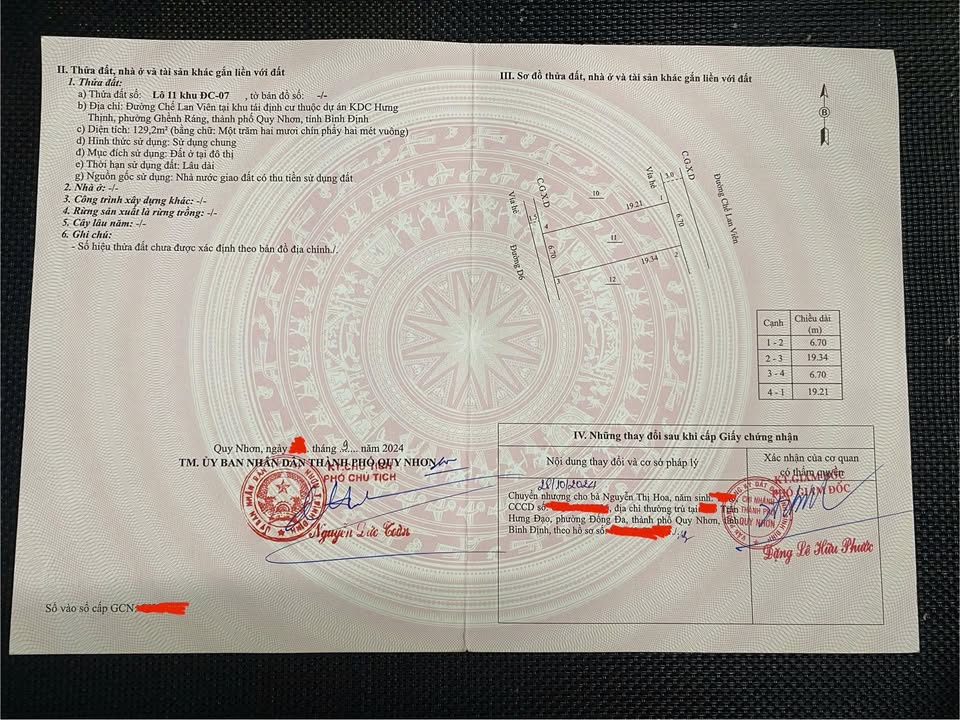 II. Thửa đất, nhà ở và tài sản khác gắn liền với đất
1. Thửa đất:
a) Thửa đất số: Lô 11 khu ĐC-07 , tờ bản đồ số: -/-
b) Địa chỉ: Đường Chế Lan Viên tại khu tái định cư thuộc dự án KDC Hưng
Thịnh, phường Ghềnh Ráng, thành phố Quy Nhơn, tỉnh Bình Định
c) Diện tích: 129,2m² (bằng chữ: Một trăm hai mươi chín phẩy hai mét vuông)
d) Hình thức sử dụng: Sử dụng chung
đ) Mục đích sử dụng: Đất ở tại đô thị
e) Thời hạn sử dụng đất: Lâu dài
g) Nguồn gốc sử dụng: Nhà nước giao đất có thu tiền sử dụng đất
2. Nhà ở: -/-
3. Công trình xây dựng khác: -/-
4. Rừng sản xuất là rừng trồng: -/-
5. Cây lâu năm: -/-
6. Ghi chú:
- Số hiệu thửa đất chưa được xác định theo bản đồ địa chính./.
Quy Nhơn, ngày tháng 9 năm 2024
TM. ỦY BAN NHÂN DÂN THÀNH PHỐ QUY NHƠN
KT.CHỦ TỊCH
PHÓ CHỦ TỊCH
Nguyễn Đức Toàn
Số vào sổ cấp GCN:
III. Sơ đồ thửa đất, nhà ở và tài sản khác gắn liền với đất
B
C.G.X.D
Vỉa hè
3.0
Đường Chế Lan Viên
10
19.21
1
C.G.X.D
Vỉa hè
3.5
4
6.70
11
6.70
Đường Đ6
19.34
2
3
12
Cạnh Chiều dài
(m)
1 - 2 6.70
2 - 3 19.34
3 - 4 6.70
4 - 1 19.21
IV. Những thay đổi sau khi cấp Giấy chứng nhận
Nội dung thay đổi và cơ sở pháp lý
Xác nhận của cơ quan
có thẩm quyền
28/10/2024
Chuyển nhượng cho bà Nguyễn Thị Hoa, năm sinh:
CCCD số: , địa chỉ thường trú tại Trần
Hưng Đạo, phường Đống Đa, thành phố Quy Nhơn, tỉnh
Bình Định, theo hồ sơ số:
KT.GIÁM ĐỐC
PHÓ GIÁM ĐỐC
CHI NHÁNH
THÀNH PHỐ
QUY NHƠN
Đặng Lê Hữu Phước